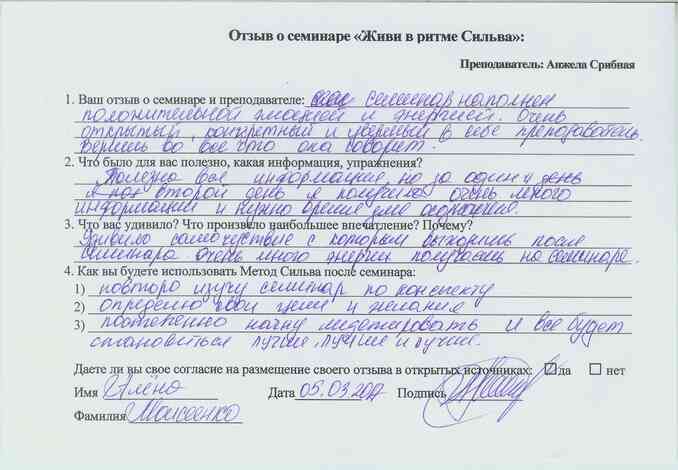 Отзыв о семинаре «Живи в ритме Сильва»:
Преподаватель: Анжела Срибная
1. Ваш отзыв о семинаре и преподавателе: Семинар наполнен
положительной эмоцией и энергией. Очень
открытый, конкретный и уверенный в себе преподаватель.
Веришь во все что она говорит.
2. Что было для вас полезно, какая информация, упражнения?
Полезна вся информация, но за один день
второй день я получила очень много
информации и нужно время для
3. Что вас удивило? Что произвело наибольшее впечатление? Почему?
Удивило самочувствие с которым выходишь после
семинара. Очень много энергии получаешь на семинаре.
4. Как вы будете использовать Метод Сильва после семинара:
1) повторо изучу семинар по конспекту
2) определю свои цели и желания
3) постепенно начну медетировать и все будет
становиться лучше, лучше и лучше.
Даете ли вы свое согласие на размещение своего отзыва в открытых источниках: да нет
Имя Алена Дата 05.03.2017 Подпись
Фамилия Моисеенко